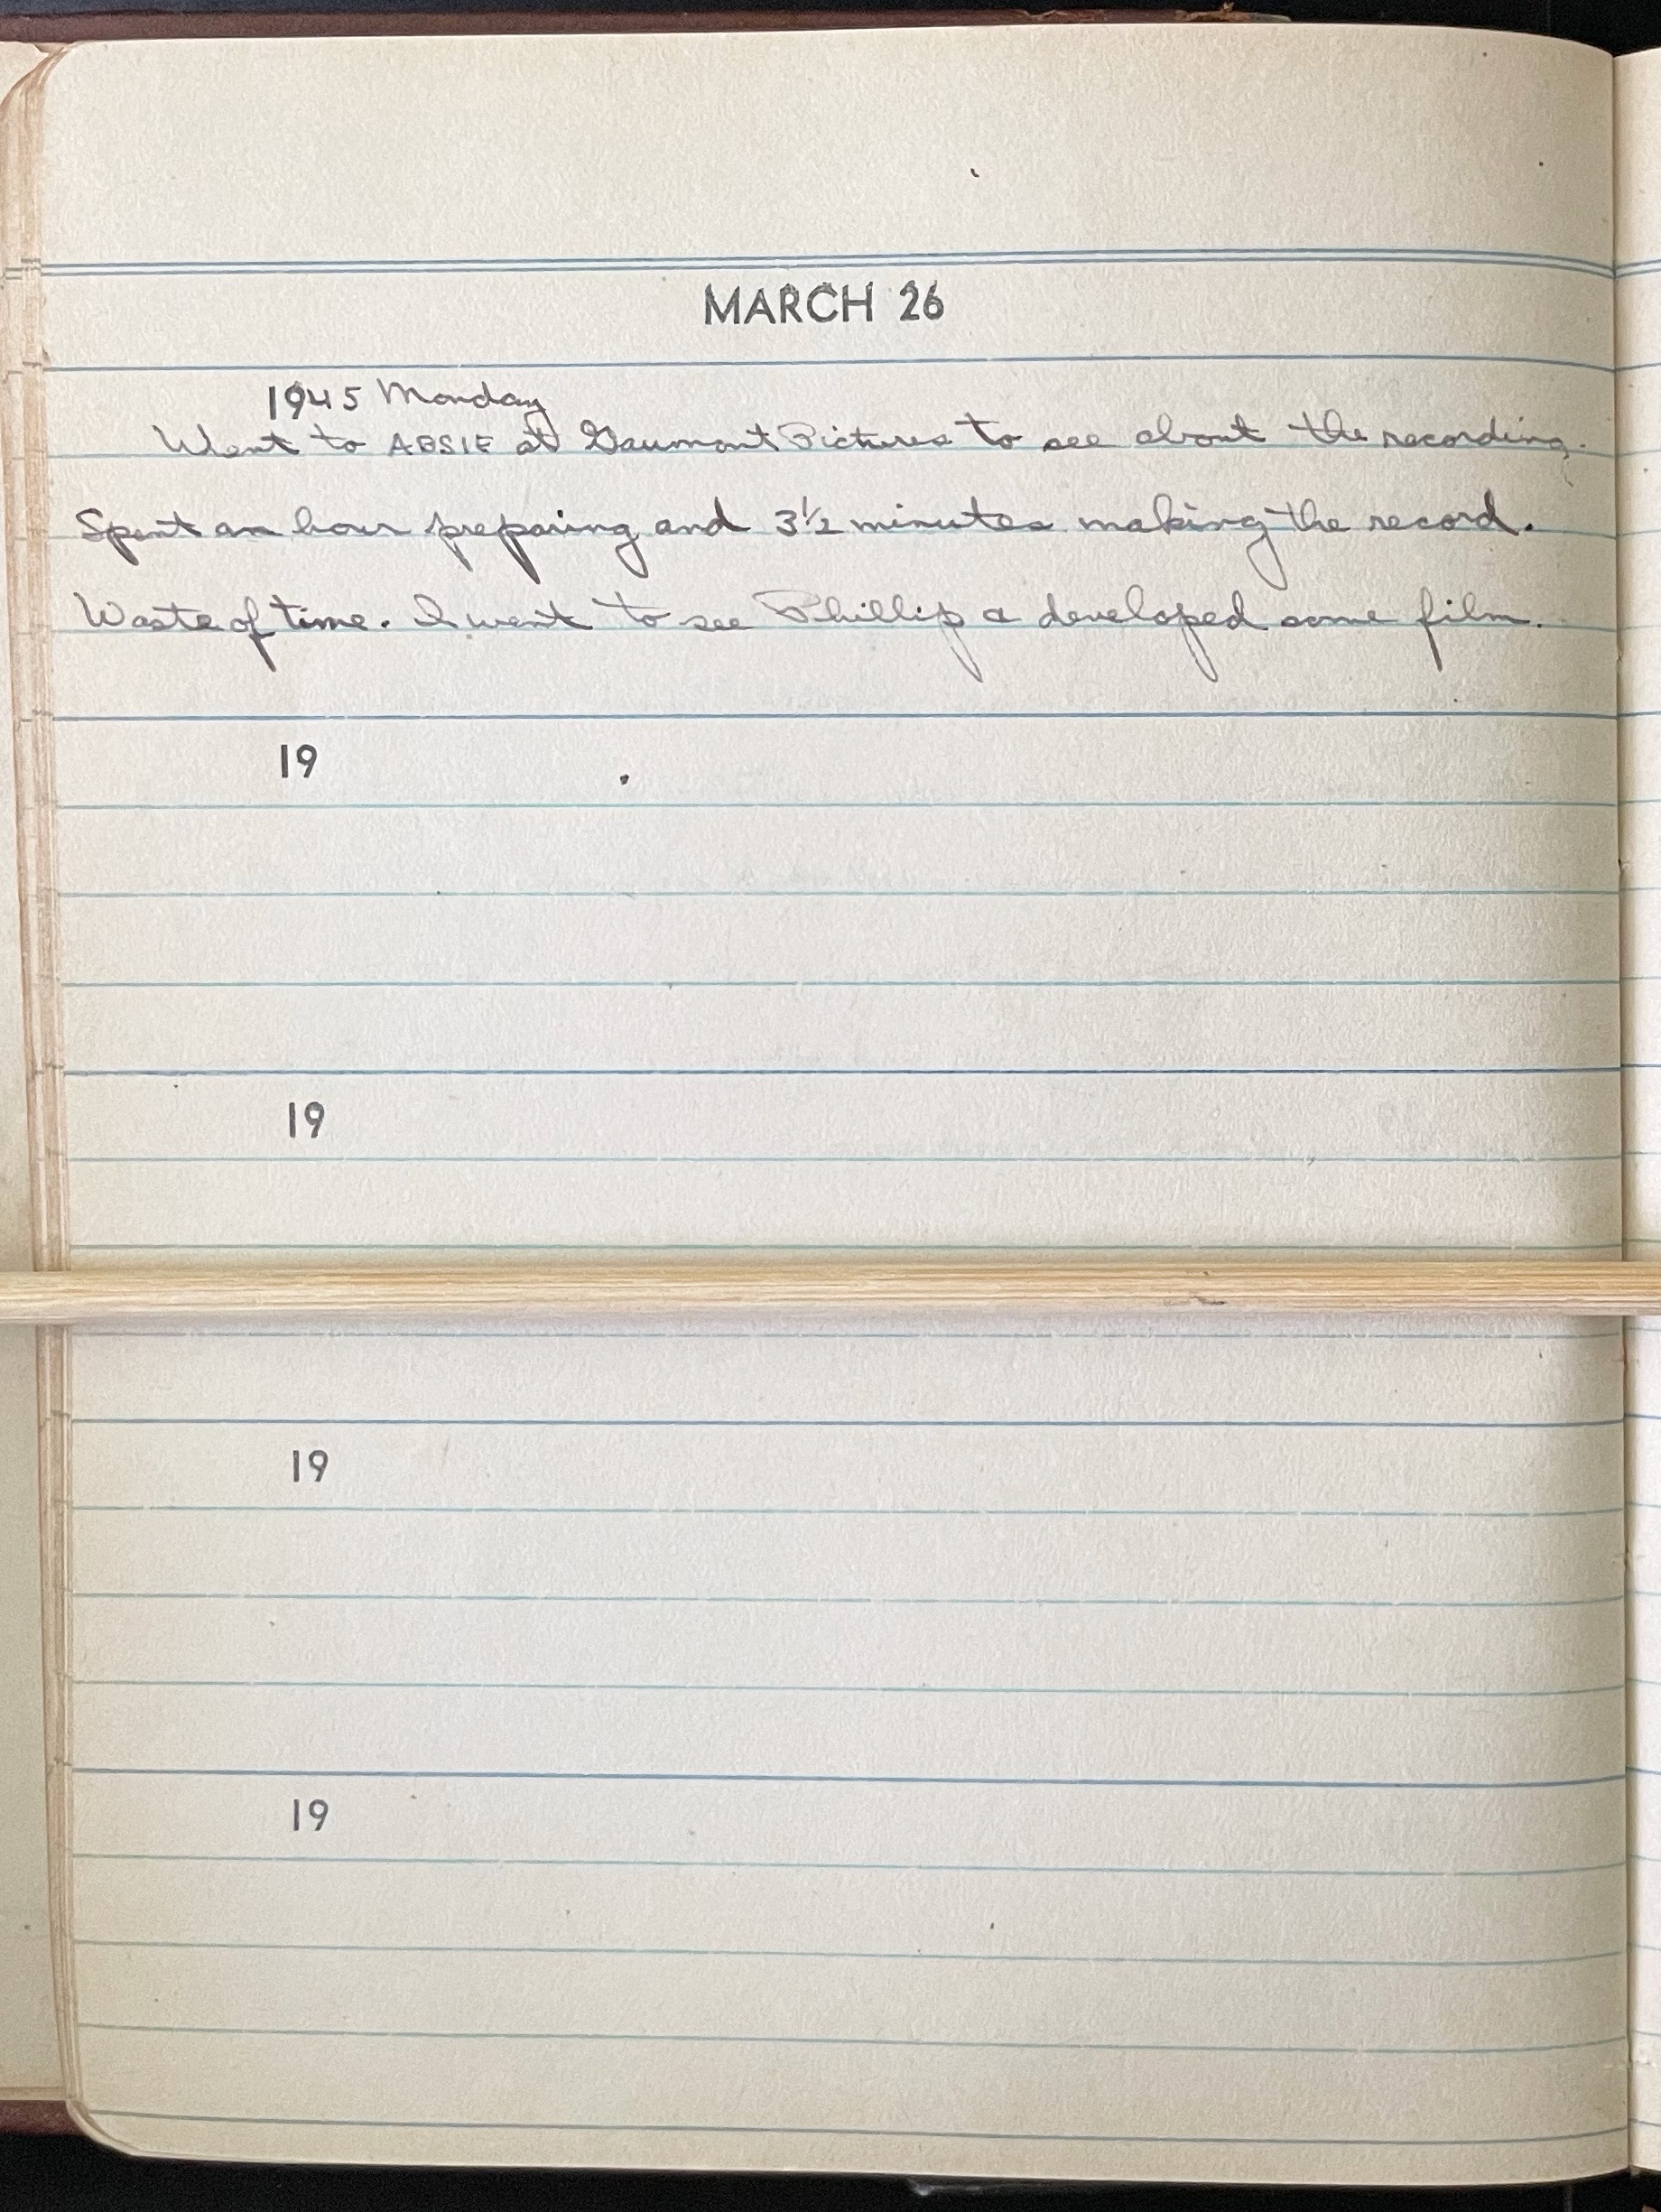 MARCH 26
1945 Monday
Went to ABSIE at Gaumont Pictures to see about the recording.
Spent an hour preparing and 3½ minutes making the record.
Waste of time. I went to see Phillip & developed some film.
19
19
19
19